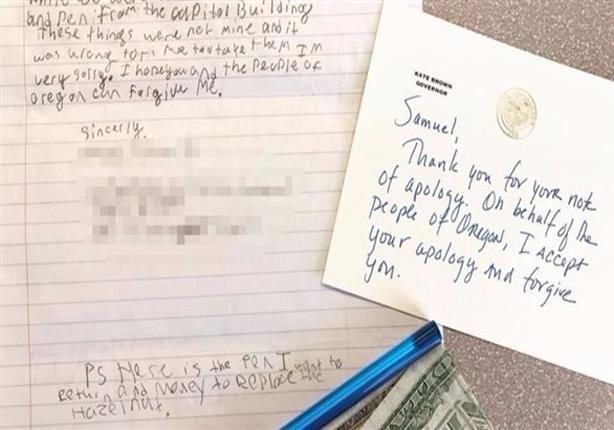 and Pen From the capitol Building
These things were not mine and it
was wrong me to take them I'm
very sorry. I hope you and the People of
oregon can Forgive Me.
Sincerly,
PS Here is the Pen I want to
Return and Money to Replace the
Hazelnut.
KATE BROWN
GOVERNOR
Samuel,
Thank you for your note
of apology. On behalf of the
people of Oregon, I accept
your apology and forgive
you.